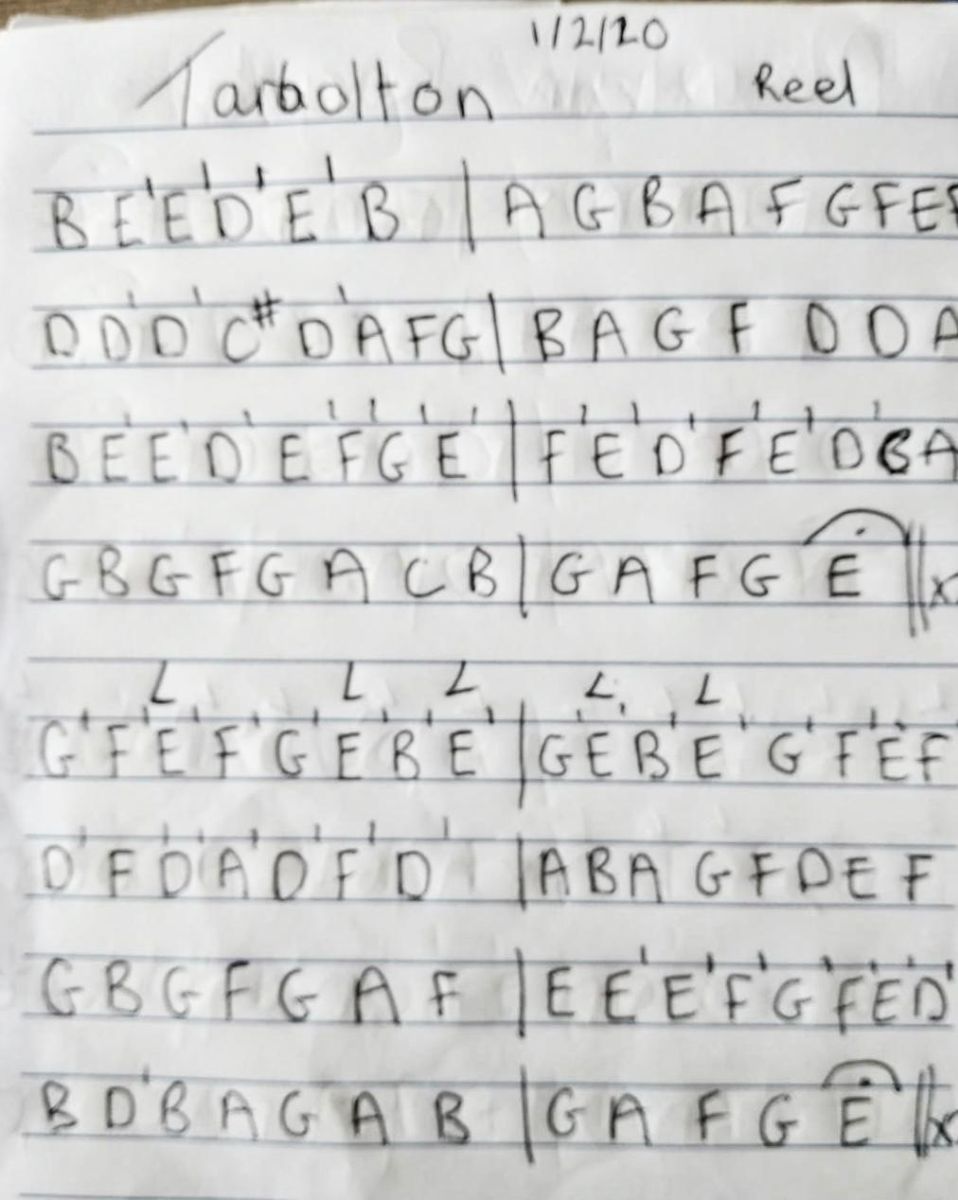 1/2/20
Tarbolton Reel
B E' E' D' E' B | A G B A F G F E F
D D' D' C# D' A F G | B A G F D D A
B E' E' D' E F' G' E' | F' E' D' F' E' D' B A
G B G F G A C B | G A F G E || x
L L L L L
G' F' E' F' G' E' B' E' | G' E' B' E' G' F' E' F
D' F' D' A' D' F' D' | A B A G F D E F
G B G F G A F | E E' E' F' G' F' E' D'
B D' B A G A B | G A F G E || x